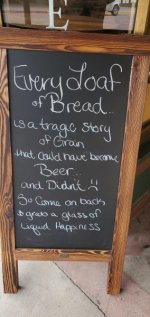 E
Every Loaf
of Bread...
is a tragic story
of Grain
that could have become
Beer...
and Didn't :(
So Come on back
& grab a glass of
Liquid Happiness